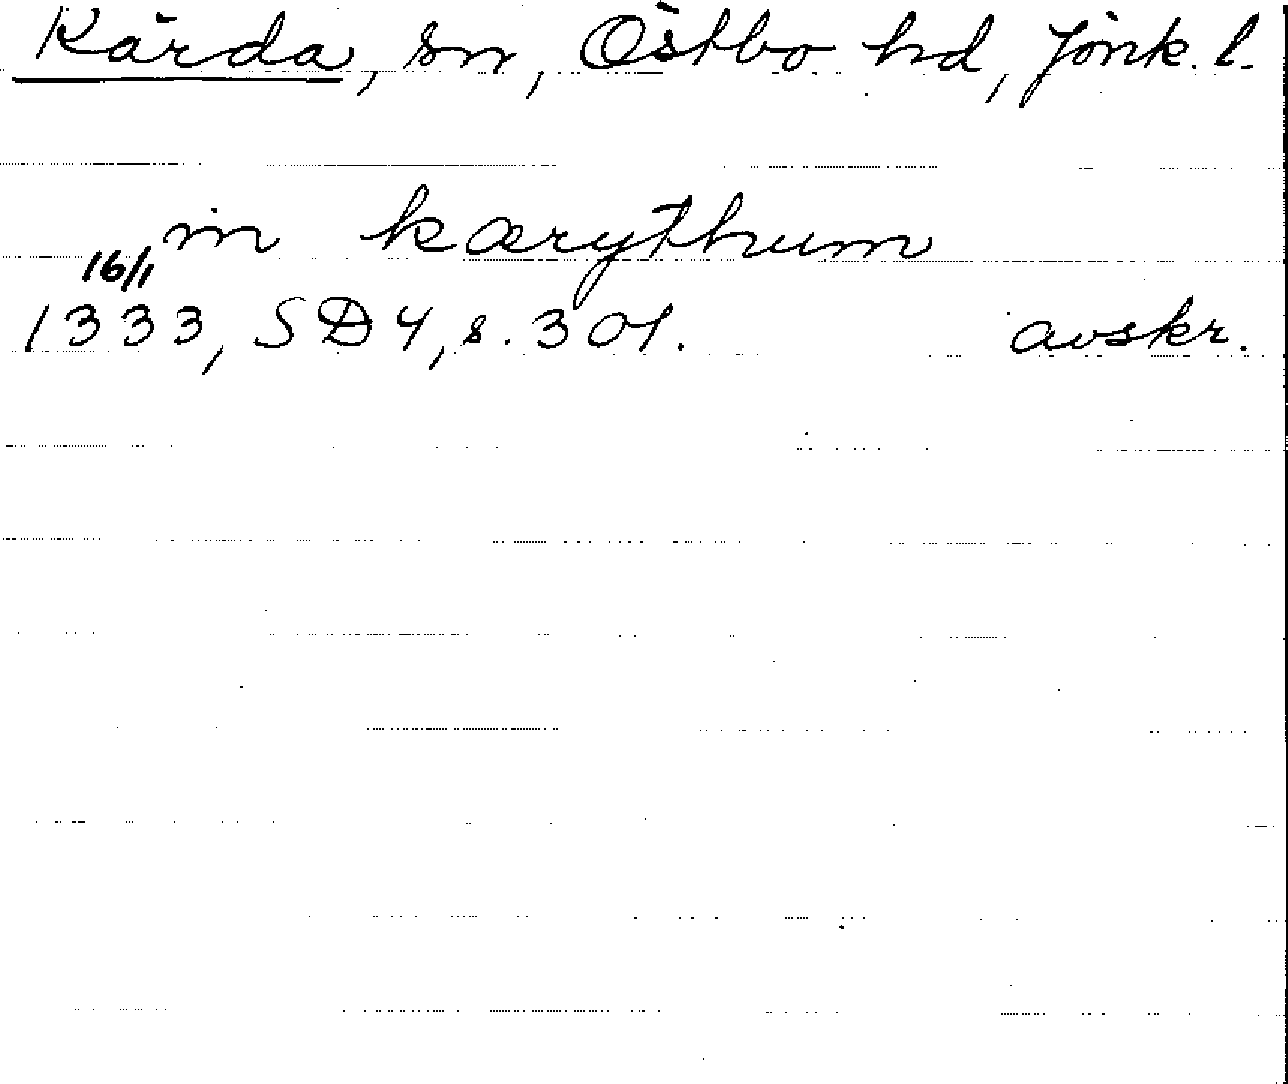 Kärda, sn, Östbo hd, Jönk. l.
in kærythum
16/1
1333, SD 4, s. 301. avskr.